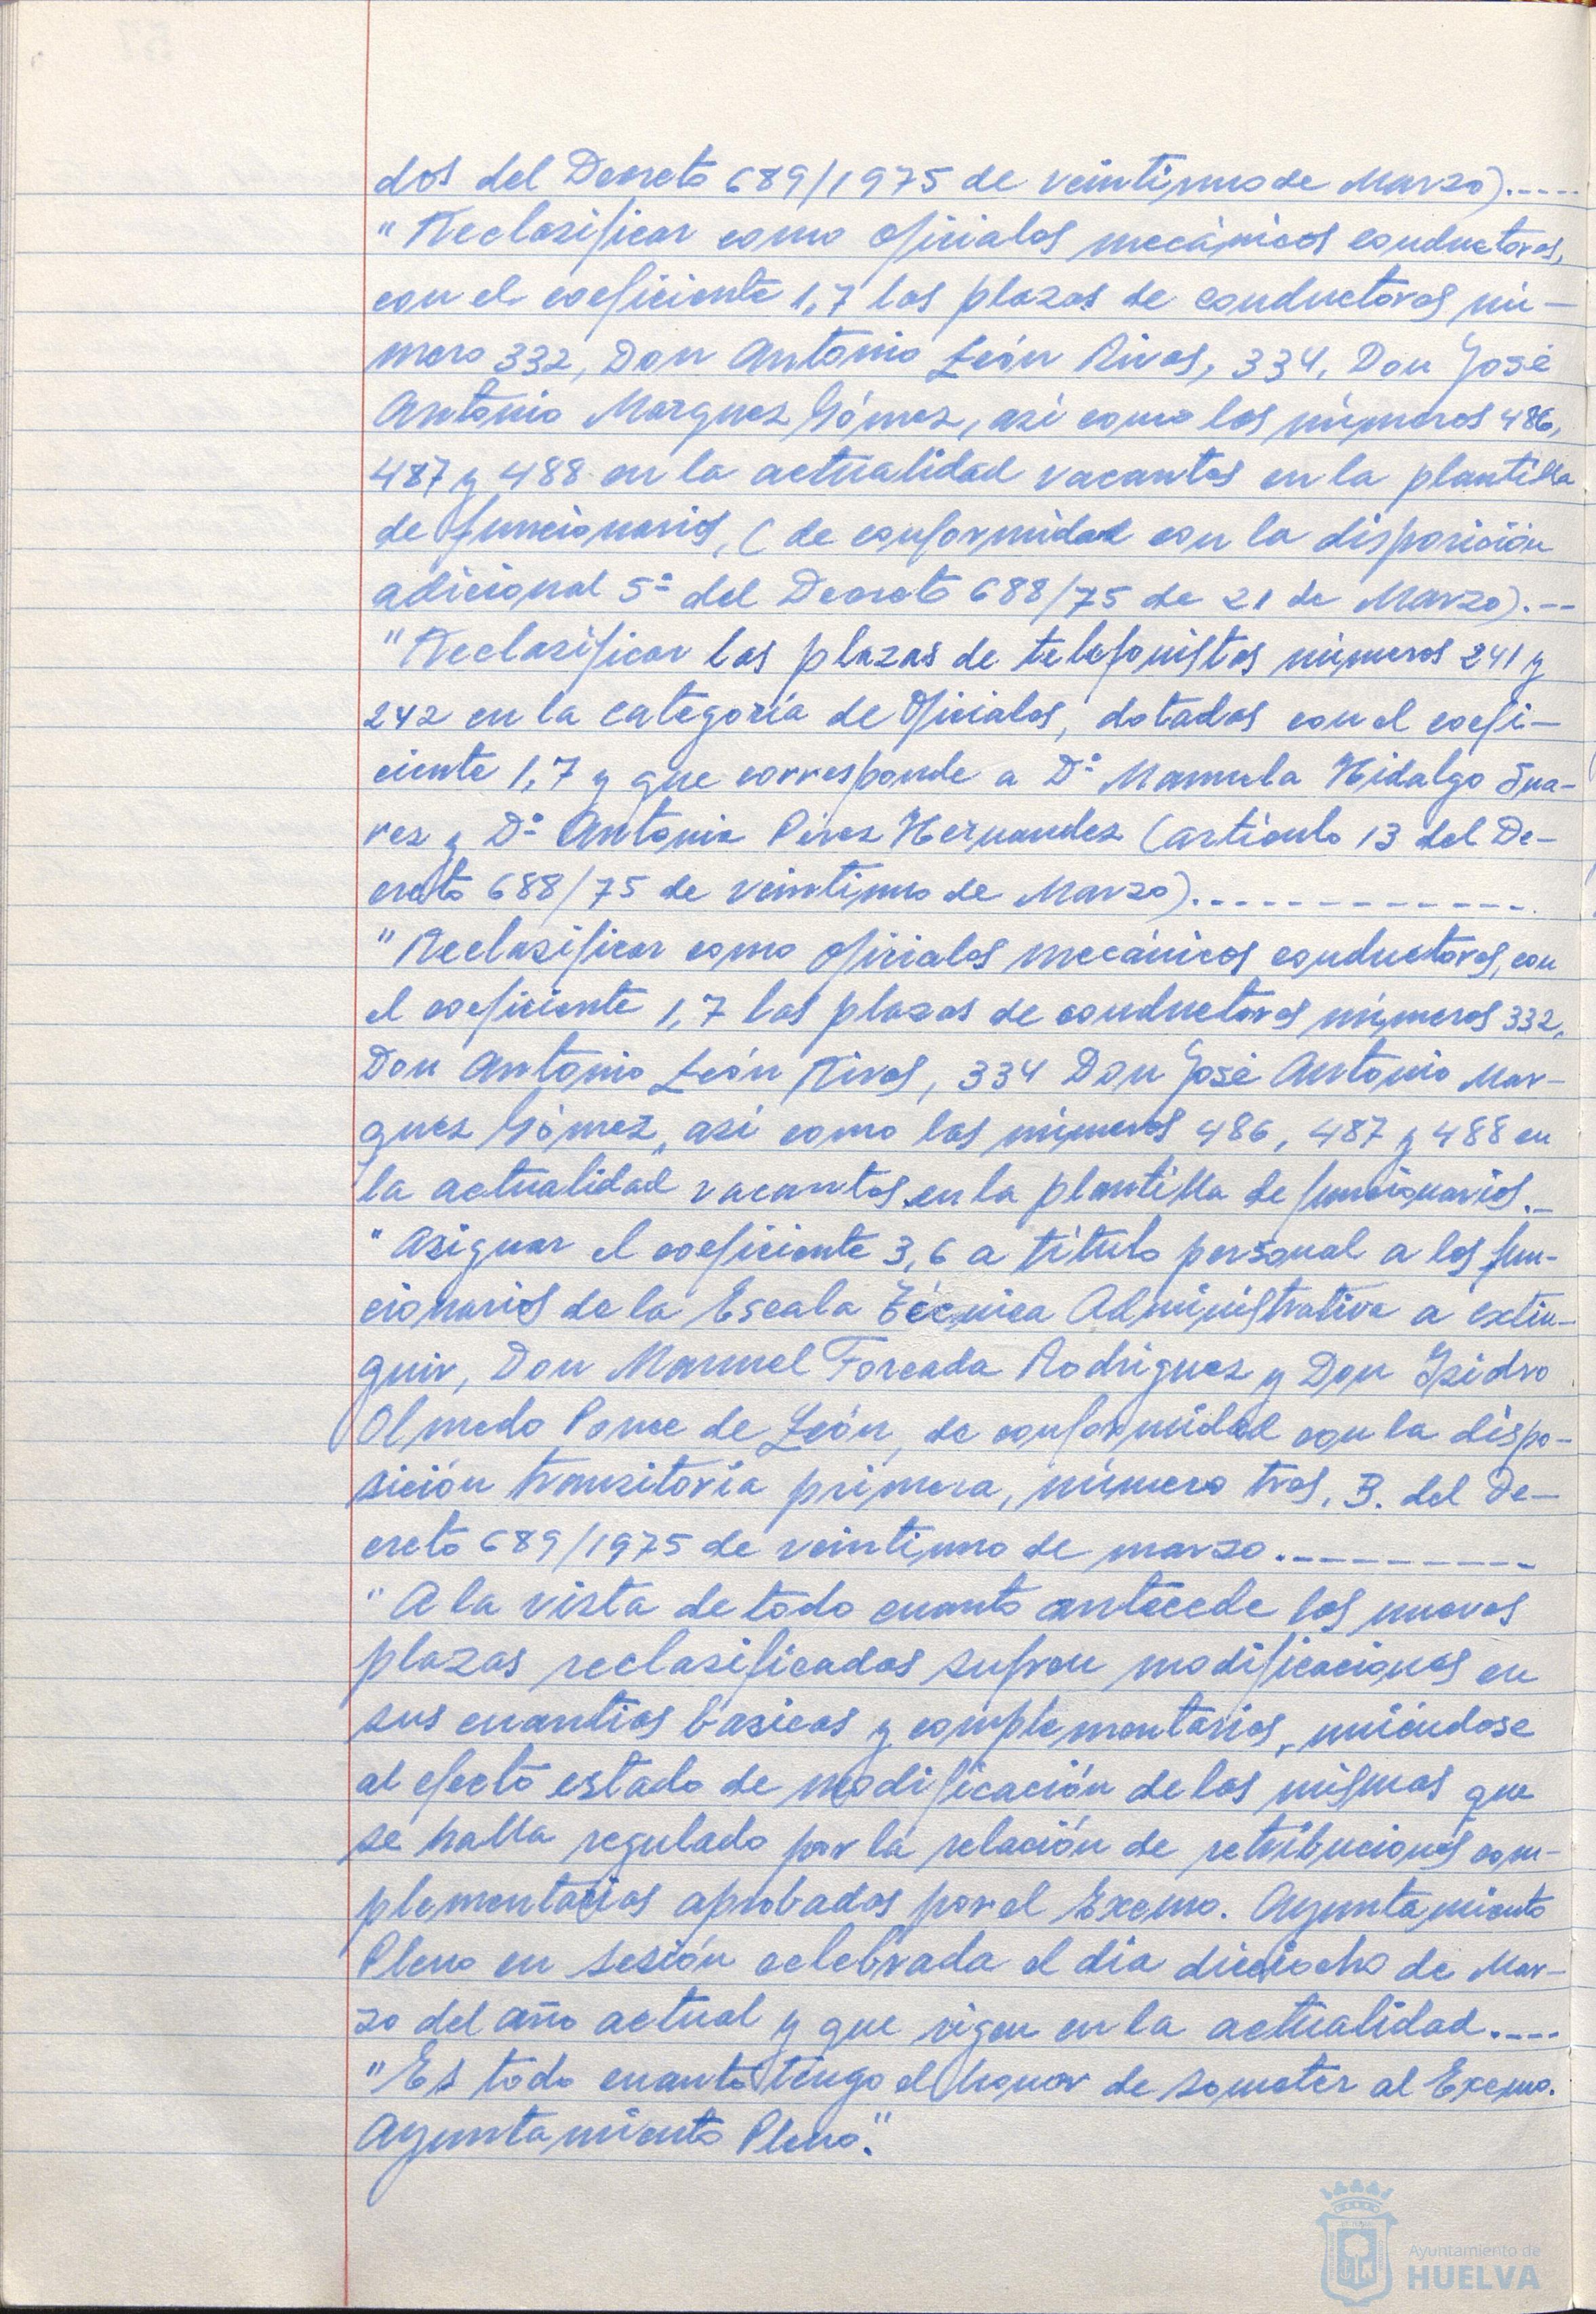 dos del Decreto 689/1975 de veintiuno de Marzo).----
"Reclasificar como oficiales mecánicos conductores,
con el coeficiente 1,7 las plazas de conductores nú-
mero 332, Don Antonio León Rivas, 334, Don José
Antonio Marquez Gómez, asi como los números 486,
487 y 488 en la actualidad vacantes en la plantilla
de funcionarios, (de conformidad con la disposición
adicional 5ª del Decreto 688/75 de 21 de Marzo).--
"Reclasificar las plazas de telefonistas números 241 y
242 en la categoría de Oficiales, dotadas con el coefi-
ciente 1,7 y que corresponde a Dª Manuela Hidalgo Sua-
rez y Dª Antonia Pérez Hernandez (artículo 13 del De-
creto 688/75 de veintiuno de Marzo).------------
"Reclasificar como oficiales mecánicos conductores, con
el coeficiente 1,7 las plazas de conductores números 332,
Don Antonio León Rivas, 334 Don José Antonio Mar-
quez Gómez, asi como las números 486, 487 y 488 en
la actualidad vacantes en la plantilla de funcionarios.-
"Asignar el coeficiente 3,6 a título personal a los fun-
cionarios de la Escala Técnica Administrativa a extin-
guir, Don Manuel Forcada Rodriguez y Don Isidro
Olmedo Ponce de León, de conformidad con la dispo-
sición transitoria primera, número tres, B. del De-
creto 689/1975 de veintiuno de marzo.---------
"A la vista de todo cuanto antecede las nuevas
plazas reclasificadas sufren modificaciones en
sus cuantias basicas y complementarias, uniéndose
al efecto estado de modificación de las mismas que
se halla regulado por la relación de retribuciones com-
plementarias aprobadas por el Excmo. Ayuntamiento
Pleno en sesión celebrada el dia dieciocho de Mar-
zo del año actual y que rigen en la actualidad.----
"Es todo cuanto tengo el honor de someter al Excmo.
Ayuntamiento Pleno."
Ayuntamiento de
HUELVA